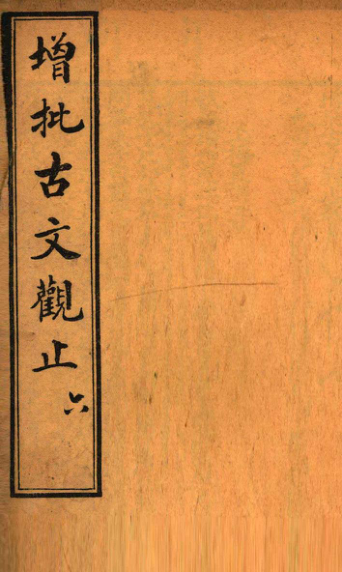 增批古文觀止
六